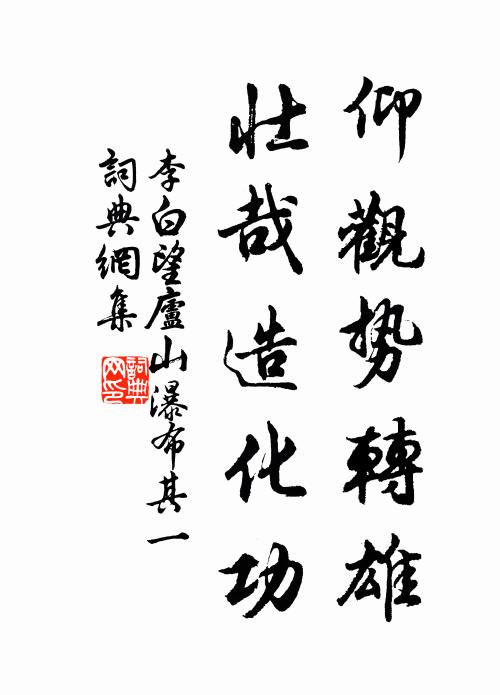 仰觀勢轉雄
壯哉造化功
李白望廬山瀑布其一
詞典網集
詞典
网印